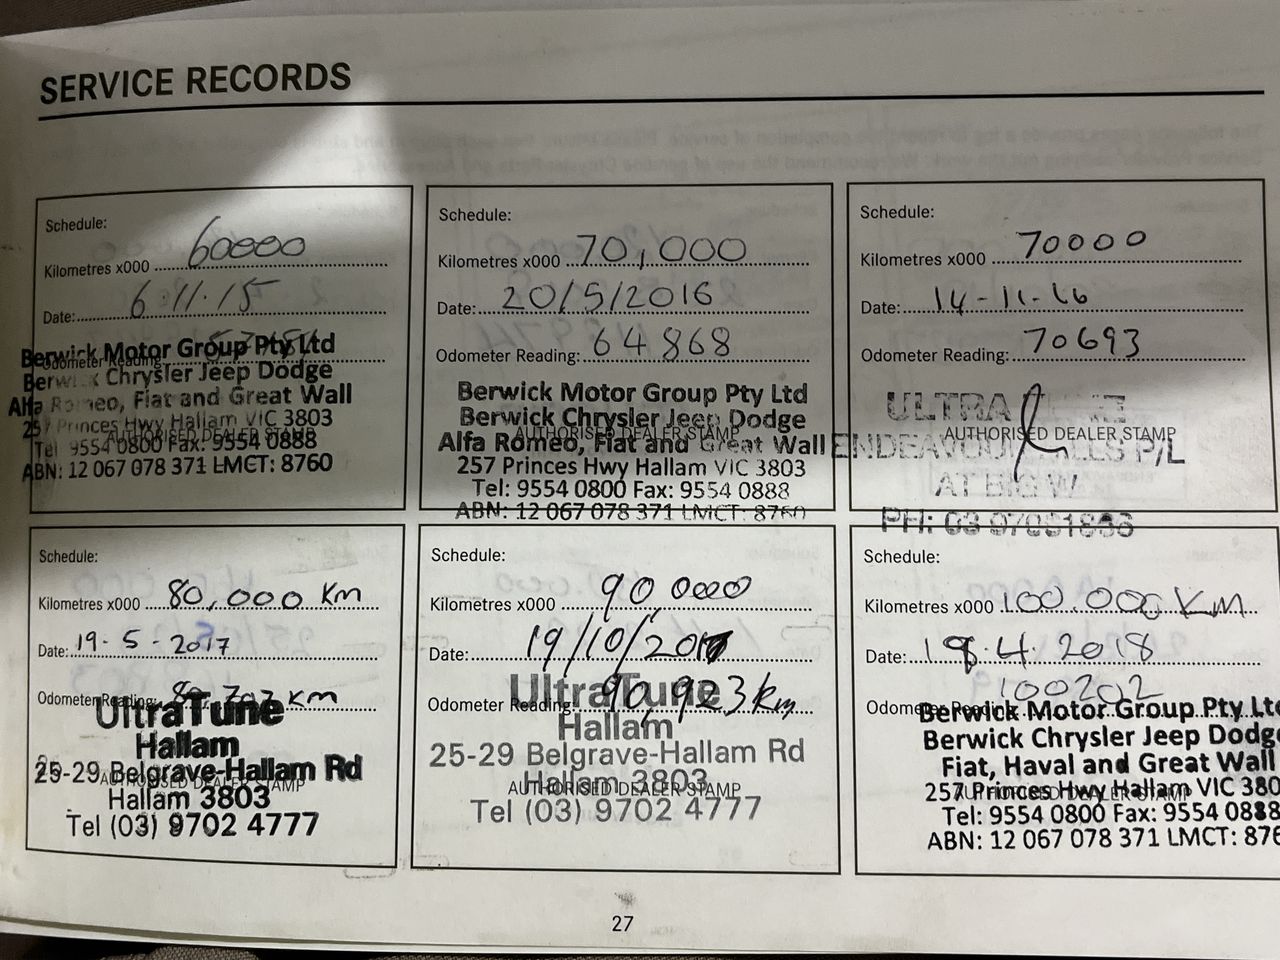 SERVICE RECORDS
Schedule:
Kilometres x000 60000
Date: 6.11.15
Odometer Reading:
Berwick Motor Group Pty Ltd
Berwick Chrysler Jeep Dodge
Alfa Romeo, Fiat and Great Wall
257 Princes Hwy Hallam VIC 3803
AUTHORISED DEALER STAMP
Tel 9554 0800 Fax: 9554 0888
ABN: 12 067 078 371 LMCT: 8760
Schedule:
Kilometres x000 70,000
Date: 20/5/2016
Odometer Reading: 64868
Berwick Motor Group Pty Ltd
Berwick Chrysler Jeep Dodge
AUTHORISED DEALER STAMP
Alfa Romeo, Fiat and Great Wall
257 Princes Hwy Hallam VIC 3803
Tel: 9554 0800 Fax: 9554 0888
ABN: 12 067 078 371 LMCT: 8760
Schedule:
Kilometres x000 70000
Date: 14-11-16
Odometer Reading: 70693
ULTRA TUNE
AUTHORISED DEALER STAMP
ENDEAVOUR HILLS P/L
AT BIG W
PH: 03
Schedule:
Kilometres x000 80,000 Km
Date: 19-5-2017
Odometer Reading: km
UltraTune
Hallam
25-29 Belgrave-Hallam Rd
AUTHORISED DEALER STAMP
Hallam 3803
Tel (03) 9702 4777
Schedule:
Kilometres x000 90 0000
Date: 19/10/2017
Odometer Reading: 90,923km
UltraTune
Hallam
25-29 Belgrave-Hallam Rd
Hallam 3803
AUTHORISED DEALER STAMP
Tel (03) 9702 4777
Schedule:
Kilometres x000 100.000 KM
Date: 18.4.2018
100202
Berwick Motor Group Pty Ltd
Berwick Chrysler Jeep Dodge
Fiat, Haval and Great Wall
257 Princes Hwy Hallam VIC 380
AUTHORISED DEALER STAMP
Tel: 9554 0800 Fax: 9554 0888
ABN: 12 067 078 371 LMCT: 876
27